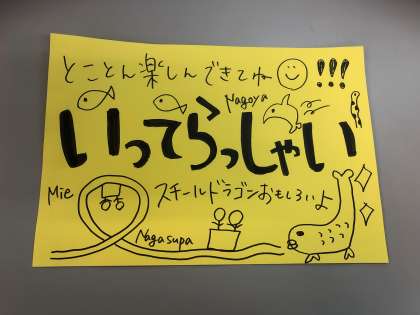 とことん楽しんできてね
!!!
Nagoya
いってらっしゃい
Mie
スチールドラゴンおもしろいよ
Nagasupa